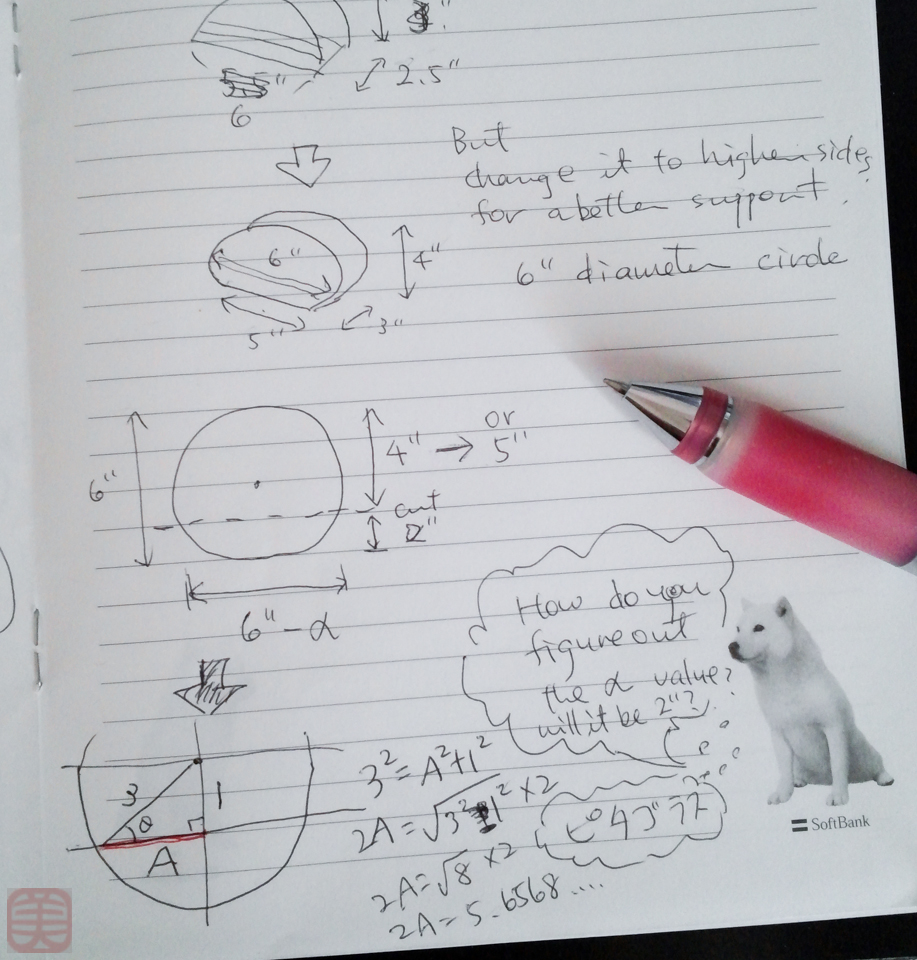 2.5"
6
But
change it to higher sides
for a better support.
6"
4"
6" diameter circle
5"
3"
6"
4" → or
5"
cut
2"
6" - α
How do you
figure out
the α value?
will it be 2"?
3
1
θ
A
3² = A² + 1²
2A = √3² - 1² × 2
2A = √8 × 2
2A = 5.6568....
ピタゴラス
SoftBank
美